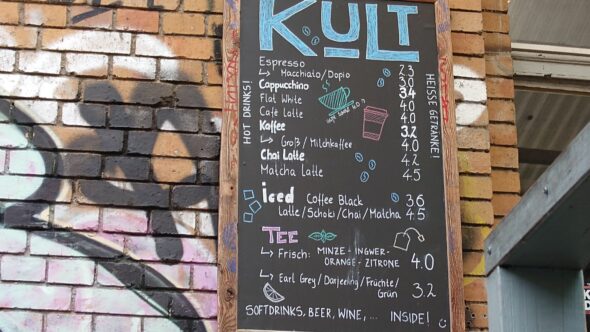 KULT
HOT DRINKS!
HEISSE GETRÄNKE!
Espresso 2.3
↳ Macchiato/Dopio 3.0
Cappucchino 3.4
Flat White 4.0
Café Latte 4.0
Kaffee 3.2
↳ Groß/Milchkaffee 4.0
Chai Latte 4.2
Matcha Latte 4.5
iced Coffee Black 3.6
Latte/Schoki/Chai/Matcha 4.5
TEE
↳ Frisch: MINZE - INGWER- 4.0
ORANGE - ZITRONE
↳ Earl Grey/Darjeeling/Früchte/ 3.2
Grün
SOFTDRINKS, BEER, WINE, ... INSIDE!